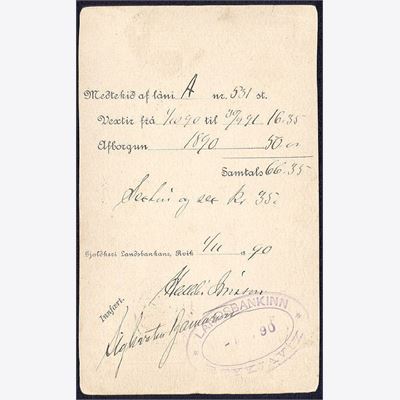 Meðtekið af láni A nr. 531 st.
Vextir frá 1/10 90 til 30/4 91 16.35
Afborgun 1890 50 00
Samtals 66.35
Sextíu og sex Kr. 35
Gjaldkeri Landsbankans, Rvík 1/11 90
Halld. Jónsson
Innfært.
Sighvatur Bjarnason
LANDSBANKINN
90
REYKJAVÍK